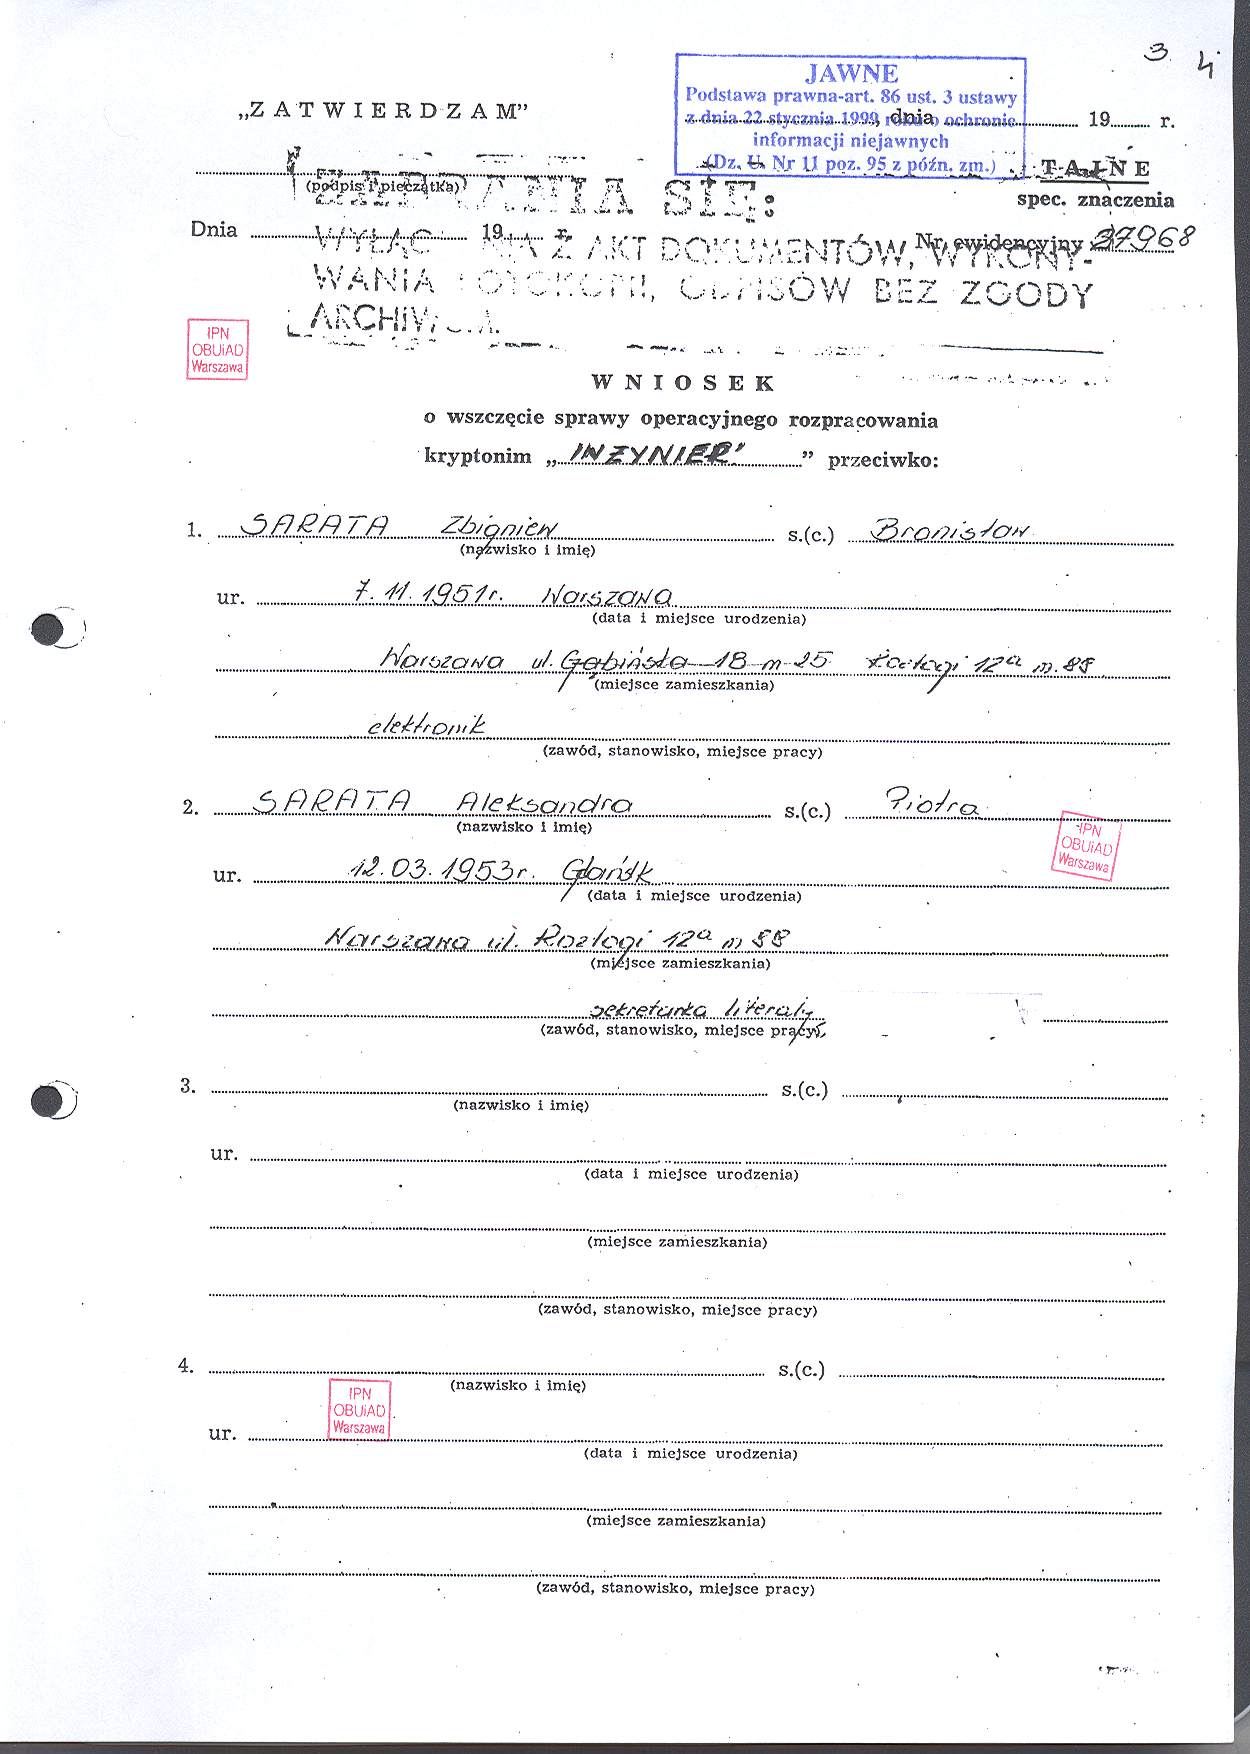 3 4
JAWNE
Podstawa prawna-art. 86 ust. 3 ustawy
z dnia 22 stycznia 1999 roku o ochronie
informacji niejawnych
(Dz. U. Nr 11 poz. 95 z późn. zm.)
„ZATWIERDZAM”
, dnia 19 r.
(podpis i pieczątka)
TAJNE
spec. znaczenia
ZABRANIA SIĘ:
Dnia 19 r.
Nr ewidencyjny 37968
WYŁĄC NIA Z AKT DOKUMENTÓW, WYKONY-
WANIA FOTOKOPII, ODPISÓW BEZ ZGODY
ARCHIWUM.
IPN
OBUiAD
Warszawa
WNIOSEK
o wszczęcie sprawy operacyjnego rozpracowania
kryptonim „INŻYNIER” przeciwko:
1. SARATA Zbigniew s.(c.) Bronisław
(nazwisko i imię)
ur. 7.11.1951r. Warszawa
(data i miejsce urodzenia)
Warszawa ul. Gąbińska 18 m 25 Rozłogi 12a m. 88
(miejsce zamieszkania)
elektronik
(zawód, stanowisko, miejsce pracy)
2. SARATA Aleksandra s.(c.) Piotra
(nazwisko i imię)
IPN
OBUiAD
Warszawa
ur. 12.03.1953r. Gdańsk
(data i miejsce urodzenia)
Warszawa ul. Rozłogi 12a m 88
(miejsce zamieszkania)
sekretarka
(zawód, stanowisko, miejsce pracy)
3. s.(c.)
(nazwisko i imię)
ur.
(data i miejsce urodzenia)
(miejsce zamieszkania)
(zawód, stanowisko, miejsce pracy)
4. s.(c.)
(nazwisko i imię)
IPN
OBUiAD
Warszawa
ur.
(data i miejsce urodzenia)
(miejsce zamieszkania)
(zawód, stanowisko, miejsce pracy)